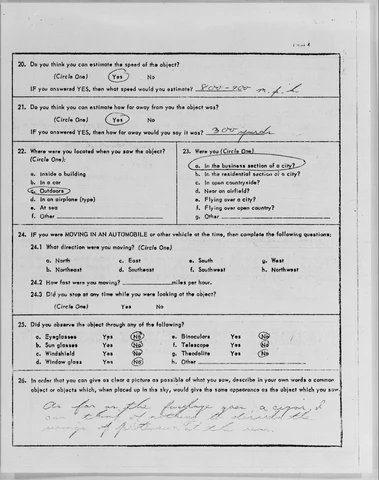 20. Do you think you can estimate the speed of the object?
(Circle One) Yes No
IF you answered YES, then what speed would you estimate? 800-900 m.p.h
21. Do you think you can estimate how far away from you the object was?
(Circle One) Yes No
IF you answered YES, then how far away would you say it was? 300 yards
22. Where were you located when you saw the object?
(Circle One):
a. Inside a building
b. In a car
c. Outdoors
d. In an airplane (type)
e. At sea
f. Other
23. Were you (Circle One)
a. In the business section of a city?
b. In the residential section of a city?
c. In open countryside?
d. Near an airfield?
e. Flying over a city?
f. Flying over open country?
g. Other
24. IF you were MOVING IN AN AUTOMOBILE or other vehicle at the time, then complete the following questions:
24.1 What direction were you moving? (Circle One)
a. North c. East e. South g. West
b. Northeast d. Southeast f. Southwest h. Northwest
24.2 How fast were you moving? miles per hour.
24.3 Did you stop at any time while you were looking at the object?
(Circle One) Yes No
25. Did you observe the object through any of the following?
a. Eyeglasses Yes No e. Binoculars Yes No
b. Sun glasses Yes No f. Telescope Yes No
c. Windshield Yes No g. Theodolite Yes No
d. Window glass Yes No h. Other
26. In order that you can give as clear a picture as possible of what you saw, describe in your own words a common
object or objects which, when placed up in the sky, would give the same appearance as the object which you saw.
As far as the fuselage goes, a cigar, I